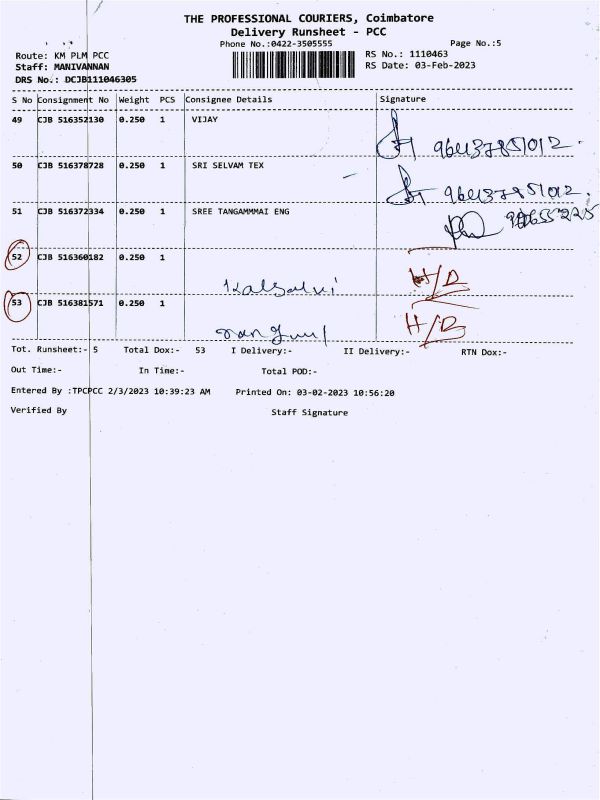 THE PROFESSIONAL COURIERS, Coimbatore
Delivery Runsheet - PCC
Phone No.:0422-3505555 Page No.:5
Route: KM PLM PCC RS No.: 1110463
Staff: MANIVANNAN RS Date: 03-Feb-2023
DRS No.: DCJB111046305
S No Consignment No Weight PCS Consignee Details Signature
49 CJB 516352130 0.250 1 VIJAY
50 CJB 516378728 0.250 1 SRI SELVAM TEX
51 CJB 516372334 0.250 1 SREE TANGAMMMAI ENG
52 CJB 516360182 0.250 1 H/D
53 CJB 516381571 0.250 1 H/D
Tot. Runsheet:- 5 Total Dox:- 53 I Delivery:- II Delivery:- RTN Dox:-
Out Time:- In Time:- Total POD:-
Entered By :TPCPCC 2/3/2023 10:39:23 AM Printed On: 03-02-2023 10:56:20
Verified By Staff Signature